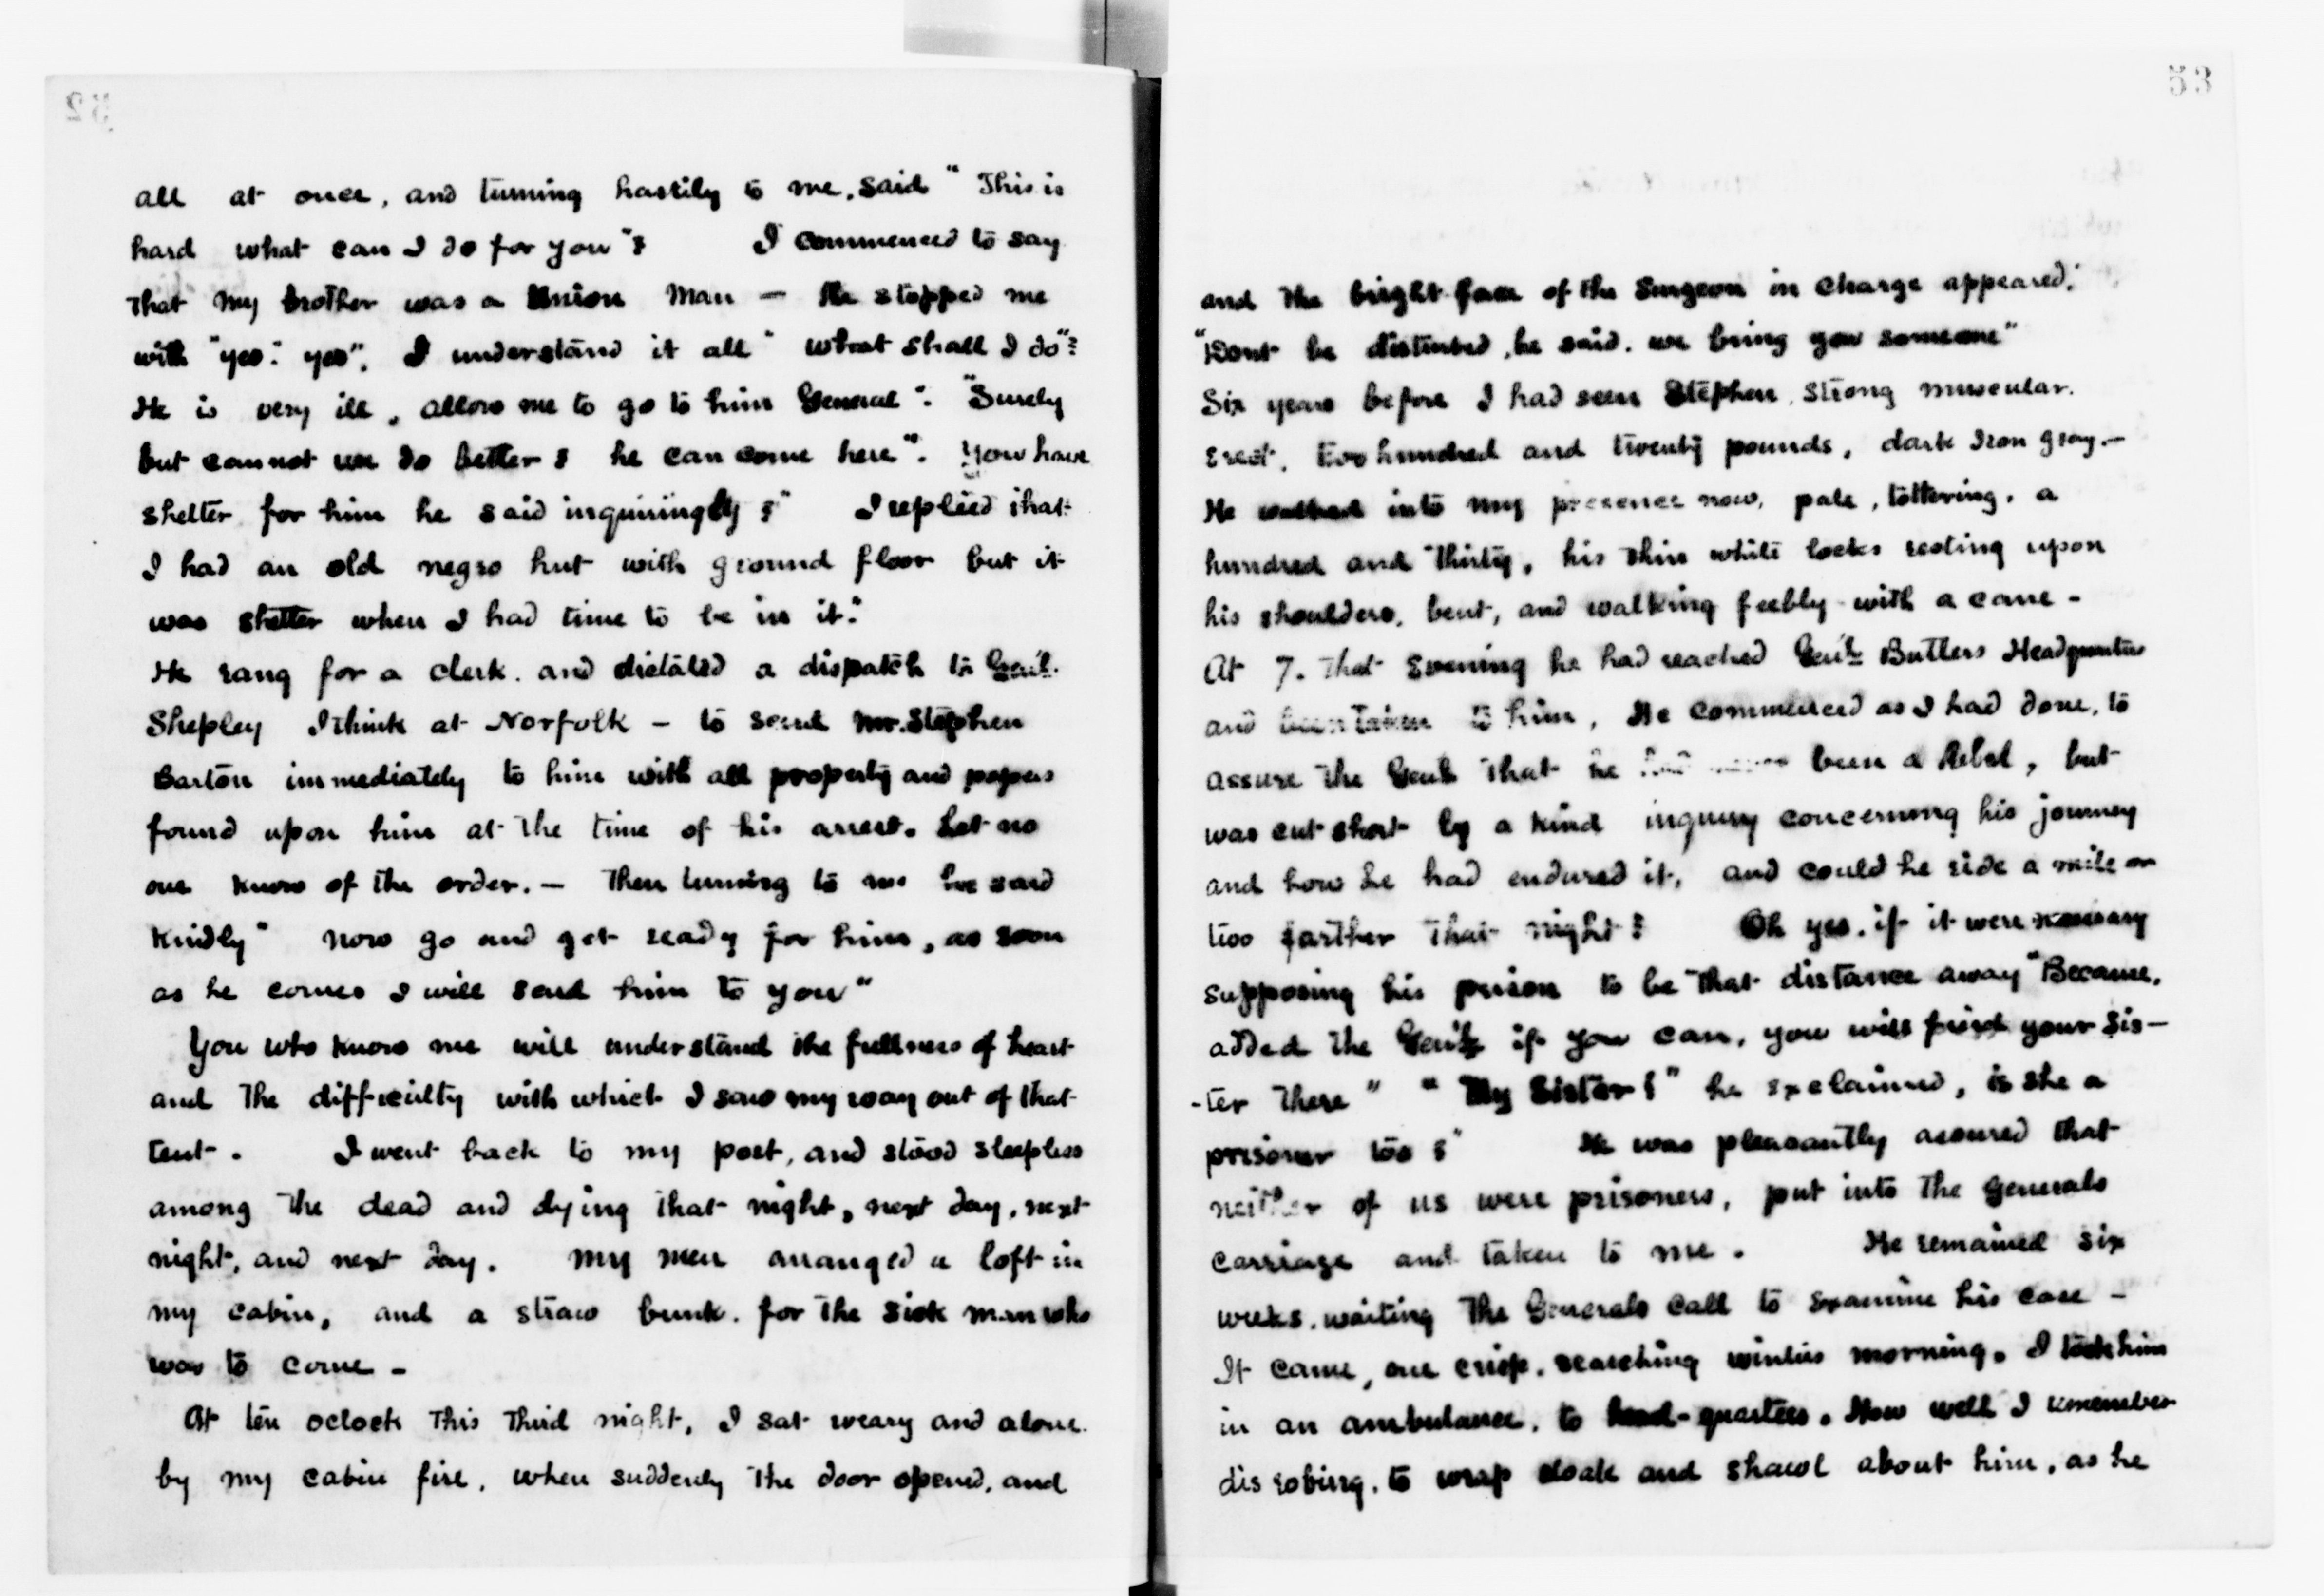 52
all at once, and turning hastily to me, said "This is
hard what can I do for you"?  I commenced to say
that my brother was a Union Man — He stopped me
with "yes." yes". I understand it all" what shall I do"?
He is very ill, allow me to go to him General". "Surely
but cannot we do better? he can come here". You have
shelter for him he said inquiringly?"  I replied that
I had an old negro hut with ground floor but it
was shelter when I had time to be in it."
He rang for a clerk. and dictated a dispatch to Gen'l.
Shepley I think at Norfolk — to send Mr. Stephen
Barton immediately to him with all property and papers
found upon him at the time of his arrest. Let no
one know of the order. — Then turning to me he said
Kindly" now go and get ready for him, as soon
as he comes I will send him to you"
You who know me will understand the fullness of heart
and the difficulty with which I saw my way out of that
tent.  I went back to my post, and stood sleepless
among the dead and dying that night, next day, next
night, and next day. My men arranged a loft in
my cabin, and a straw bunk. for the sick man who
was to come —
At ten oclock this third night, I sat weary and alone.
by my cabin fire, when suddenly the door opened, and
53
and the bright face of the Surgeon in Charge appeared.
"Dont be disturbed, he said. we bring you someone"
Six years before I had seen Stephen, strong muscular.
Erect, two hundred and twenty pounds, dark Iron gray. —
He walked into my presence now, pale, tottering, a
hundred and thirty, his thin white locks resting upon
his shoulders, bent, and walking feebly with a cane —
At 7. that Evening he had reached Gen'l Butlers Headquarters
and been taken to him, He commenced as I had done, to
assure the Gen'l that he had never been a Rebel, but
was cut short by a kind inquiry concerning his journey
and how he had endured it, and could he ride a mile or
two farther that night?  Oh yes. if it were necessary
supposing his prison to be that distance away "Because,
added the Gen'l if you can, you will find your sis-
-ter there" "My Sister!" he exclaimed, is she a
prisoner too?"  He was pleasantly assured that
neither of us were prisoners, put into the Generals
carriage and taken to me.  He remained six
weeks, waiting the Generals call to examine his case —
It came, one crisp, searching winters morning. I took him
in an ambulance, to head-quarters. How well I remember
disrobing, to wrap cloak and shawl about him, as he